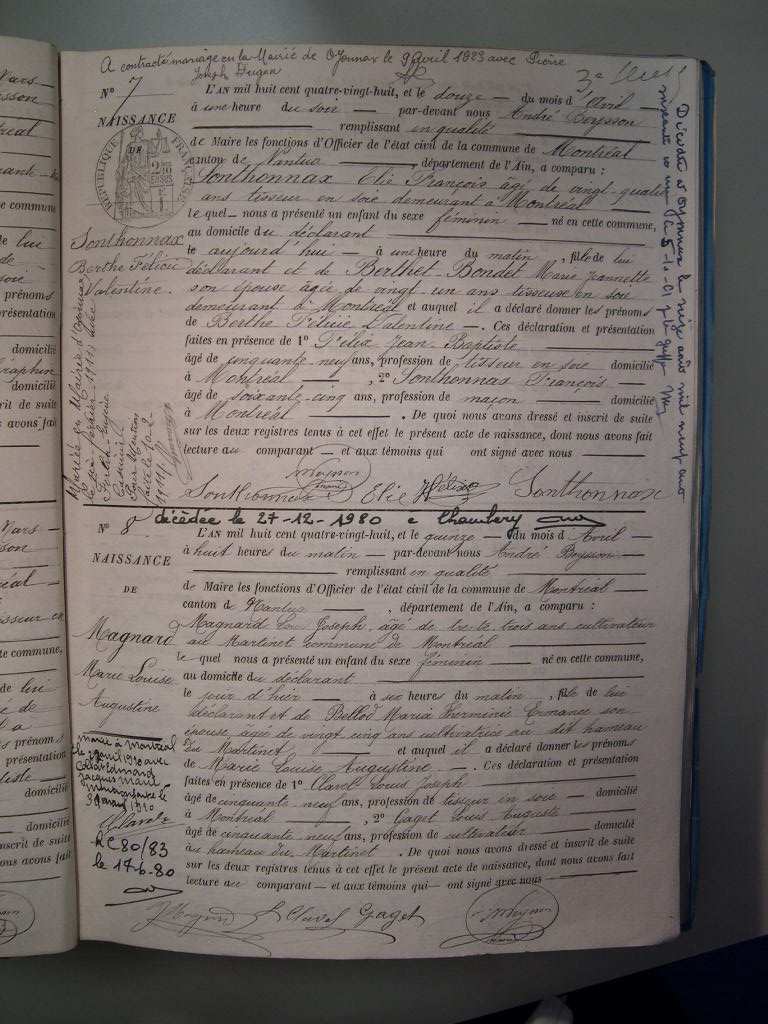 A contracté mariage en la Mairie de Oyonnax le 9 Avril 1923 avec Pierre
Joseph
N° 7
NAISSANCE
DE
RÉPUBLIQUE FRANÇAISE
Sonthonnax
Berthe Félicie
Valentine.
L'AN mil huit cent quatre-vingt-huit, et le douze — du mois d'Avril
à une heure du soir — par-devant nous André Beysson
remplissant en qualité
de Maire les fonctions d'Officier de l'état civil de la commune de Montréal
canton de Nantua —, département de l'Ain, a comparu :
Sonthonnax Elie François âgé de vingt-quatre
ans tisseur en soie demeurant à Montréal
le quel — nous a présenté un enfant du sexe féminin — né en cette commune,
au domicile du déclarant
le aujourd'hui — à une heure du matin, fille de lui
déclarant et de Berthet-Bondet Marie Jeannette
son épouse âgée de vingt un ans tisseuse en soie
demeurant à Montréal et auquel il a déclaré donner les prénoms
de Berthe Félicie Valentine —. Ces déclaration et présentation
faites en présence de 1° Félix Jean-Baptiste
âgé de cinquante-neuf ans, profession de tisseur en soie domicilié
à Montréal —, 2° Sonthonnax François —
âgé de soixante-cinq ans, profession de maçon — domicilié
à Montréal —. De quoi nous avons dressé et inscrit de suite
sur les deux registres tenus à cet effet le présent acte de naissance, dont nous avons fait
lecture au comparant — et aux témoins qui ont signé avec nous —
Sonthonnax Elie Félix Sonthonnax
Décédée à Oyonnax le seize août mil neuf cent
N° 8
décédée le 27-12-1980 à Chambéry
NAISSANCE
DE
Magnard
Marie Louise
Augustine
L'AN mil huit cent quatre-vingt-huit, et le quinze — du mois d'Avril —
à huit heures du matin — par-devant nous André Beysson —
remplissant en qualité
de Maire les fonctions d'Officier de l'état civil de la commune de Montréal —
canton de Nantua —, département de l'Ain, a comparu :
Magnard Joseph, âgé de trente trois ans cultivateur
au Martinet commune de Montréal —
le quel nous a présenté un enfant du sexe féminin — né en cette commune,
au domicile du déclarant
le jour d'hier — à six heures du matin, fille de lui
déclarant et de Bellod Maria Herminie Ermance son
épouse, âgée de vingt cinq ans cultivatrice au dit hameau
du Martinet — et auquel il a déclaré donner les prénoms
de Marie Louise Augustine —. Ces déclaration et présentation
faites en présence de 1° Clavel Louis Joseph
âgé de cinquante-neuf ans, profession de tisseur en soie — domicilié
à Montréal —, 2° Gaget Louis Auguste
âgé de cinquante neuf ans, profession de cultivateur — domicilié
au hameau du Martinet. De quoi nous avons dressé et inscrit de suite
sur les deux registres tenus à cet effet le présent acte de naissance, dont nous avons fait
lecture au comparant — et aux témoins qui — ont signé avec nous —
Marié à Montréal
le avril 1910 avec
RC 80/83
le 17-6-80
Clavel Gaget